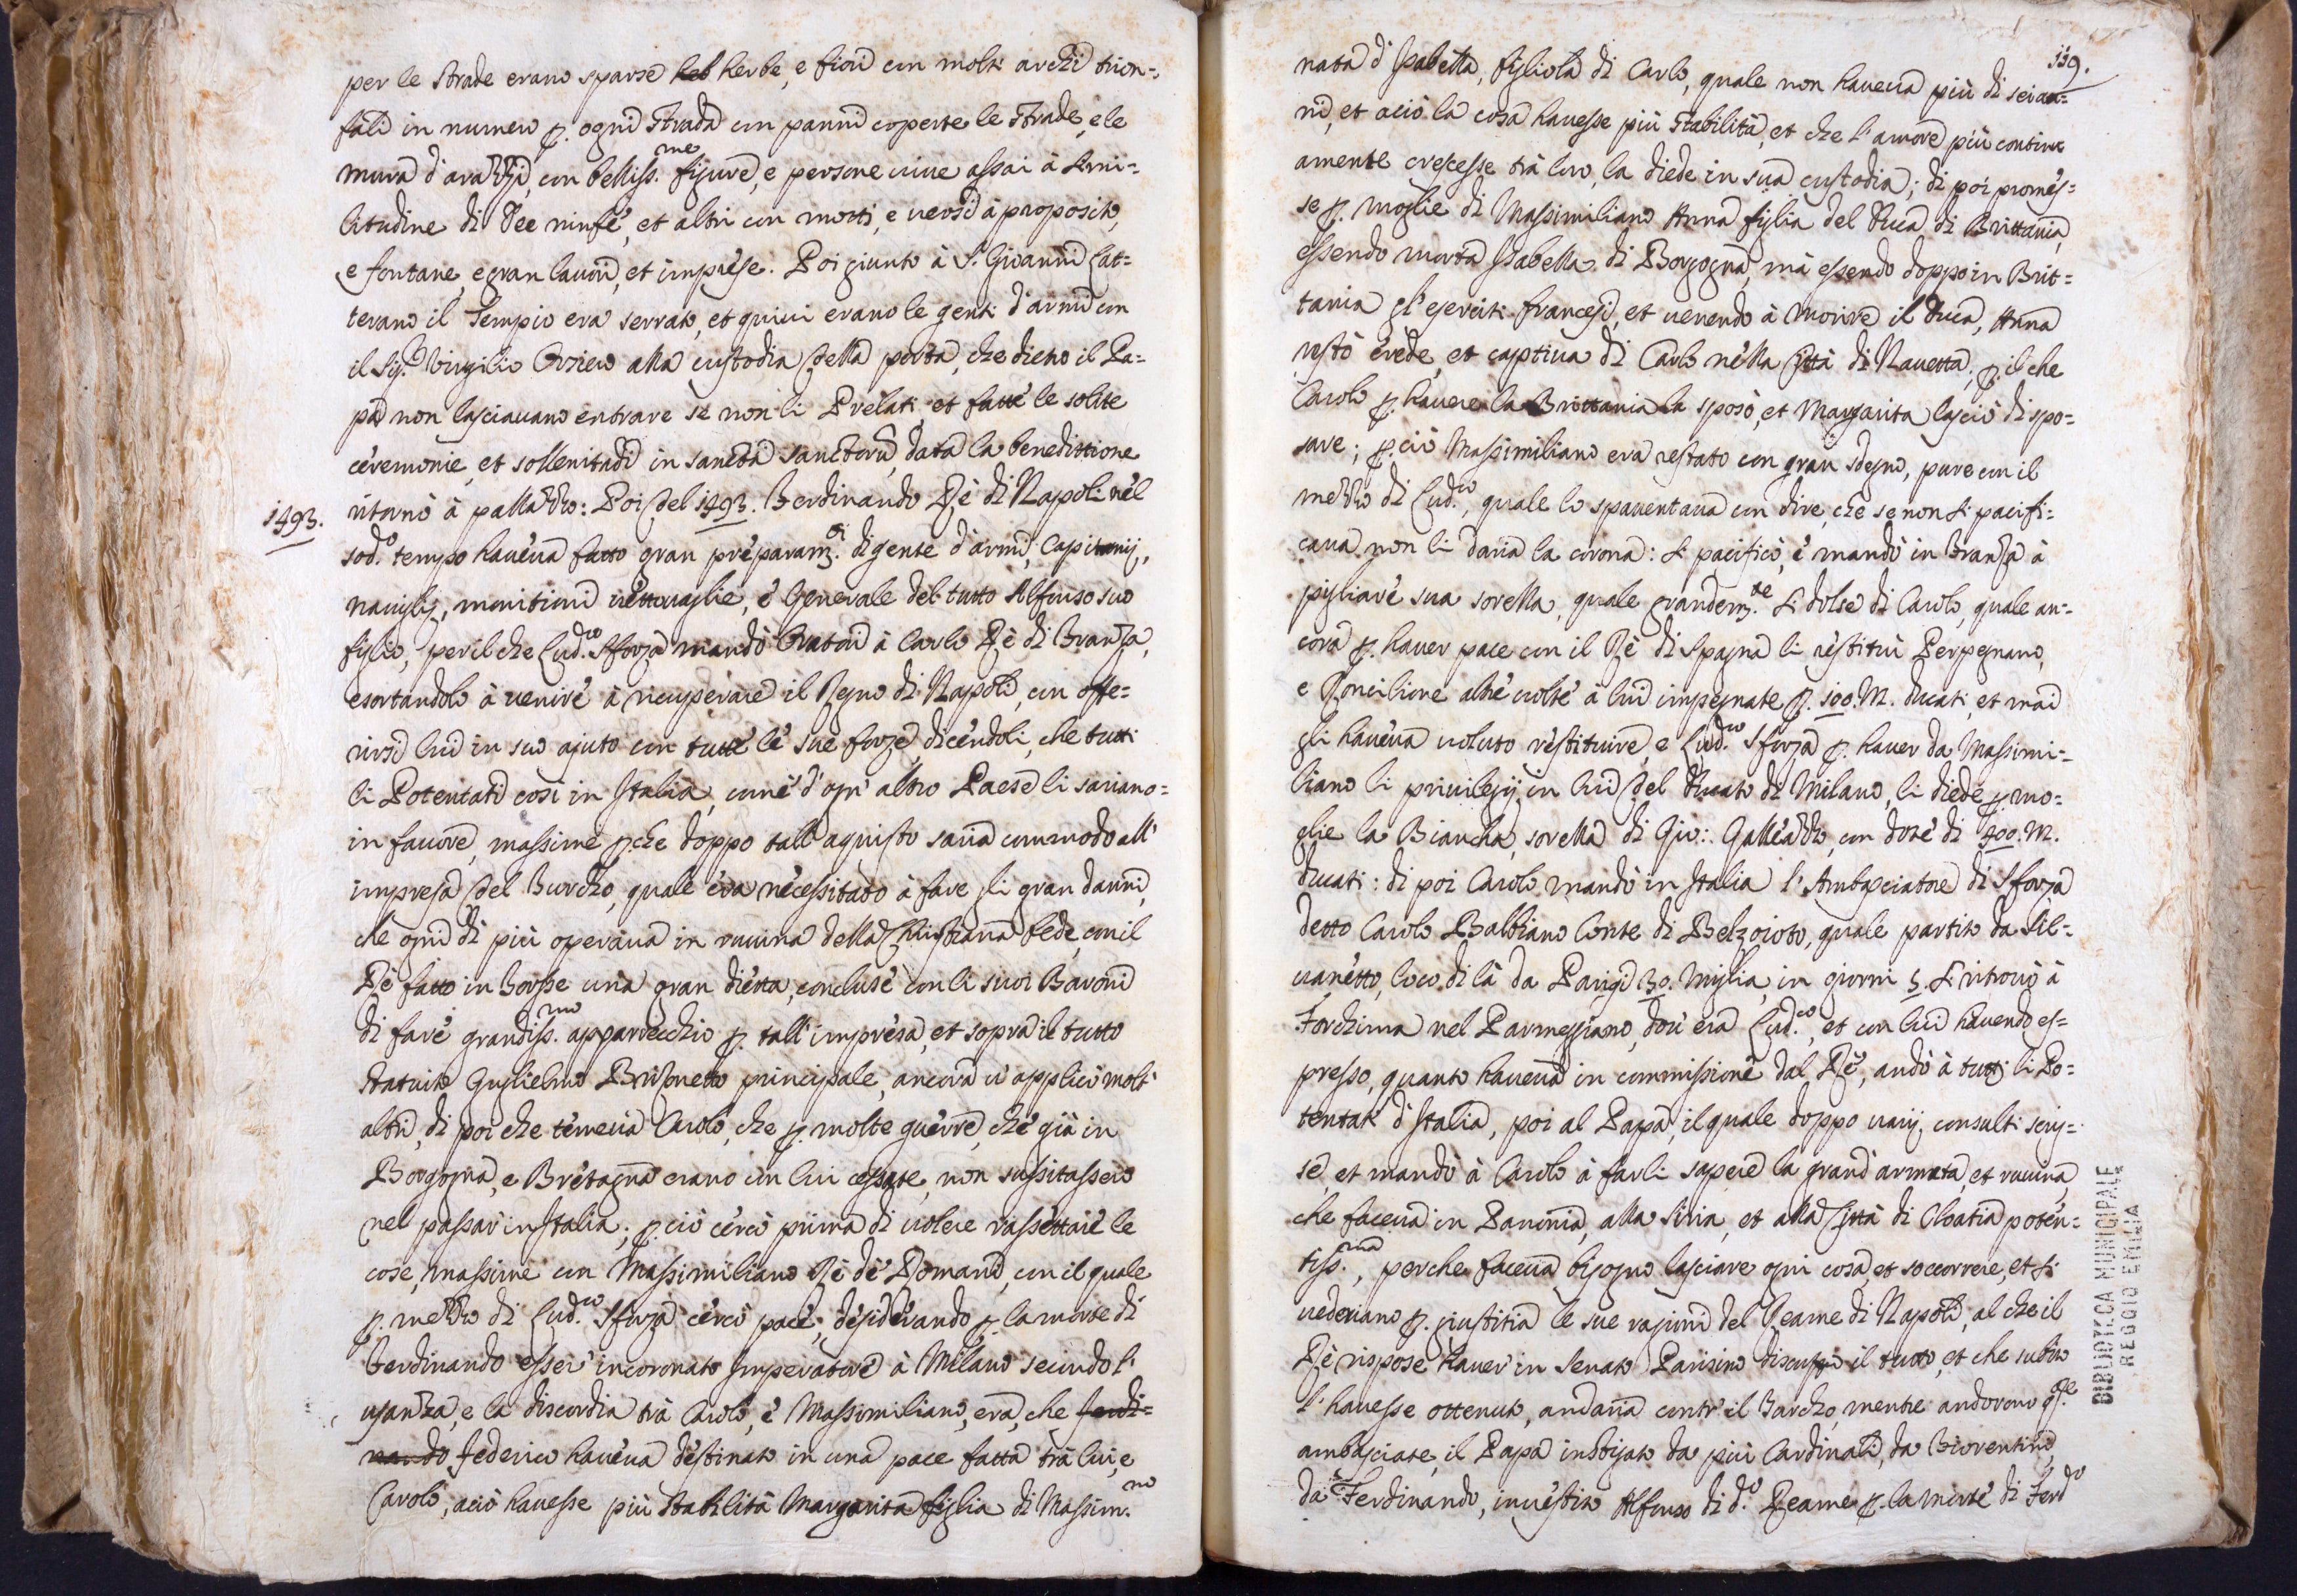 per le strade erano sparse heb herbe, e fiori con molti archi trion-
fali in numero p. ogni strada con panni coperte le strade, e le
mura d'arazzi, con belliss.me figure, e persone vive assai à simi=
litudine di Dee ninfe, et altri con motti, e versi à proposito,
e fontane, e gran lavori, et imprese. Poi giunto à S. Giovanni Lat=
terano il Tempio era serrato, et quivi erano le genti d'armi con
il Sig.r Virgilio Orsino alla custodia della porta, che dietro il Pa=
pa non lasciavano entrare se non li Prelati, et fatte le solite
ceremonie, et sollenitadi in sancta sanctorũ, data la benedittione
1493. ritornò à pallazzo: Poi del 1493. Ferdinando Rè di Napoli nel
sod.o tempo haveva fatto gran preparam.ti di gente d'armi, Capitanij,
navigij, monitioni vettovaglie, e Generale del tutto Alfonso suo
figlio, per il che Lud.co Sforza mandò Oratori à Carlo Rè di Franza,
esortandolo à venire à recuperare il Regno di Napoli, con offe=
rirsi lui in suo ajuto con tutte le sue forze, dicendoli, che tutti
li Potentati così in Italia, come d'ogn'altro Paese li sariano=
in favore, massime p.che doppo tall'aquisto saria commodo all'
impresa del Turcho, quale era necessitato à fare, li gran danni,
che ogni dì più operava in ruvina della Christiana fede, con il
Rè fatto in Torse una gran dietta, concluse con li suoi Baroni
di fare grandiss.mo apparrecchio p. tall'impresa, et sopra il tutto
statuito Guglielmo Brizonetto principale, ancora v'applicò molt'
altri, di poi che temeva Carolo, che p. molte guerre, che già in
Borgogna, e Bretagna erano con lui cessate, non sussitassero
nel passar in Italia; p. ciò cercò prima di volere rassettare le
cose, massime con Massimiliano Rè de' Romani, con il quale
p. mezzo di Lud.co Sforza cercò pace; desiderando p. la morte di
Ferdinando esser incoronato Imperatore à Milano secondo l'
usanza, e la discordia trà Carolo, e Massimiliano, era, che Ferdi=
nando Federico haveva destinato in una pace fatta trà lui, e
Carolo, acciò havesse più stabilità Margarita figlia di Massim.no
119.
nata d'Isabetta, figliola di Carlo, quale non haveva più di sei an=
ni, et aciò la cosa havesse più stabilità, et che l'amore più continu
amente crescesse trà loro, la diede in sua custodia; di poi promes=
se p. moglie di Massimiliano Anna figlia del Duca di Brittania,
essendo morta Isabella di Borgogna, mà essendo doppo in Brit=
tania gl'eserciti francesi, et venendo à morire il Duca, Anna
restò erede, et captiva di Carlo nella Città di Navetta, p. il che
Carolo p. havere la Brittania la sposò, et Margarita lasciò di spo=
sare; p. ciò Massimiliano era restato con gran sdegno, pure con il
mezzo di Lud.co, quale lo spaventava con dire, che se non si pacifi=
cava non li daria la corona: si pacificò, e mandò in Franza à
pigliare sua sorella, quale grandem.te si dolse di Carolo, quale an=
cora p. haver pace con il Rè di Spagna li restituì Perpegnano,
e Roncilione altre volte à lui impegnate p. 100. M. ducati, et mai
gli haveva voluto restituire, e Lud.co Sforza p. haver da Massimi=
liano li privilegij in lui del Ducato di Milano, li diede p. mo=
glie la Biancha, sorella di Gio: Galleazzo, con dote di 400. M.
ducati: di poi Carolo mandò in Italia l'Ambasciatore di Sforza
detto Carolo Balbiano Conte di Belzoioto, quale partito da Sil=
vanetto, loco di là da Parigi 30. miglia, in giorni 5. si ritrovò à
Torchima nel Parmeggiano, dov'era Lud.co, et con lui havendo es=
presso, quanto haveva in commissione dal Rè, andò à tutti li Po=
tentati d'Italia, poi al Papa, il quale doppo varij consulti scris=
se, et mandò à Carolo à farli sapere la grand'armata, et ruvina,
che faceva in Panonia, alla Siria, et alla Città di Cloatia poten=
tiss.ma, perche faceva bisogno lasciare ogni cosa, et soccorrere, et si
vederiano p. giustitia le sue ragioni del Reame di Napoli, al che il
Rè rispose haver in Senato Parisino discusso il tutto, et che subito
l'havesse ottenuto, andaria contr'il Turcho, mentre andorono q.ste
ambasciate, il Papa instigato da più Cardinali, da Fiorentini,
da Ferdinando, investito Alfonso di d.o Reame p. la morte di Ferd.o
BIBLIOTECA MUNICIPALE
REGGIO EMILIA